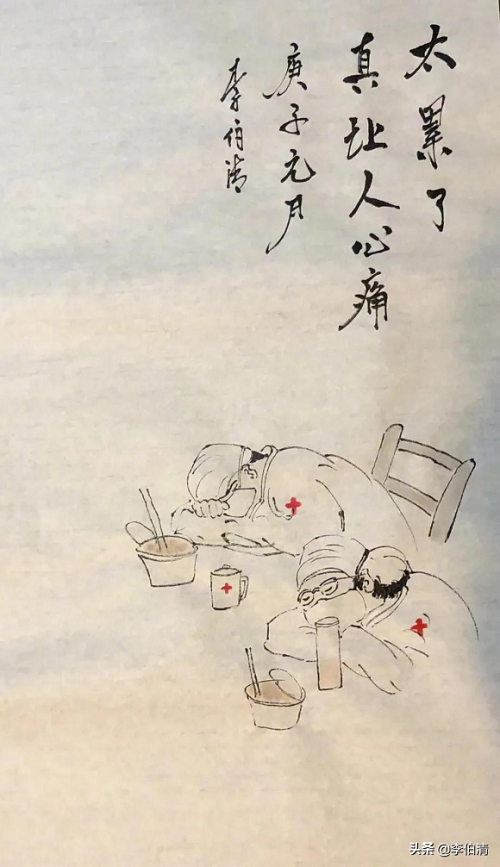 太累了
真让人心痛
庚子元月
李伯清
头条 @李伯清